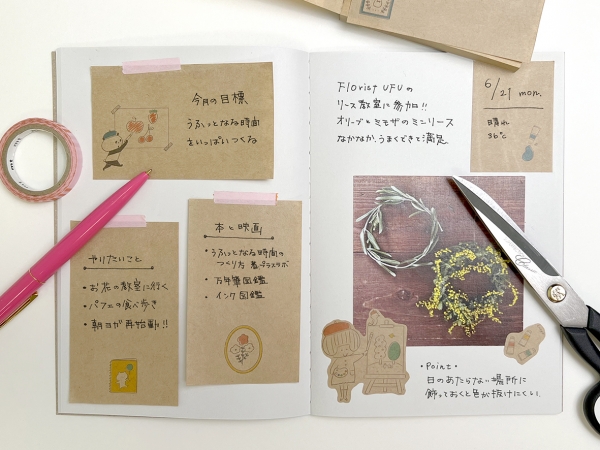 今月の目標
うふっとなる時間
をいっぱいつくる
やりたいこと
・お花の教室に行く
・パフェの食べ歩き
・朝ヨガ再始動!!
本と映画
・うふっとなる時間の
つくり方 着・プラスラボ
・万年筆図鑑
・インク図鑑
Florist UFUの
リース教室に参加!!
オリーブとミモザのミニリース
なかなか、うまくできて満足
6/21 mon.
晴れ
26℃
・Point・
日のあたらない場所に
飾っておくと色が抜けにくい。